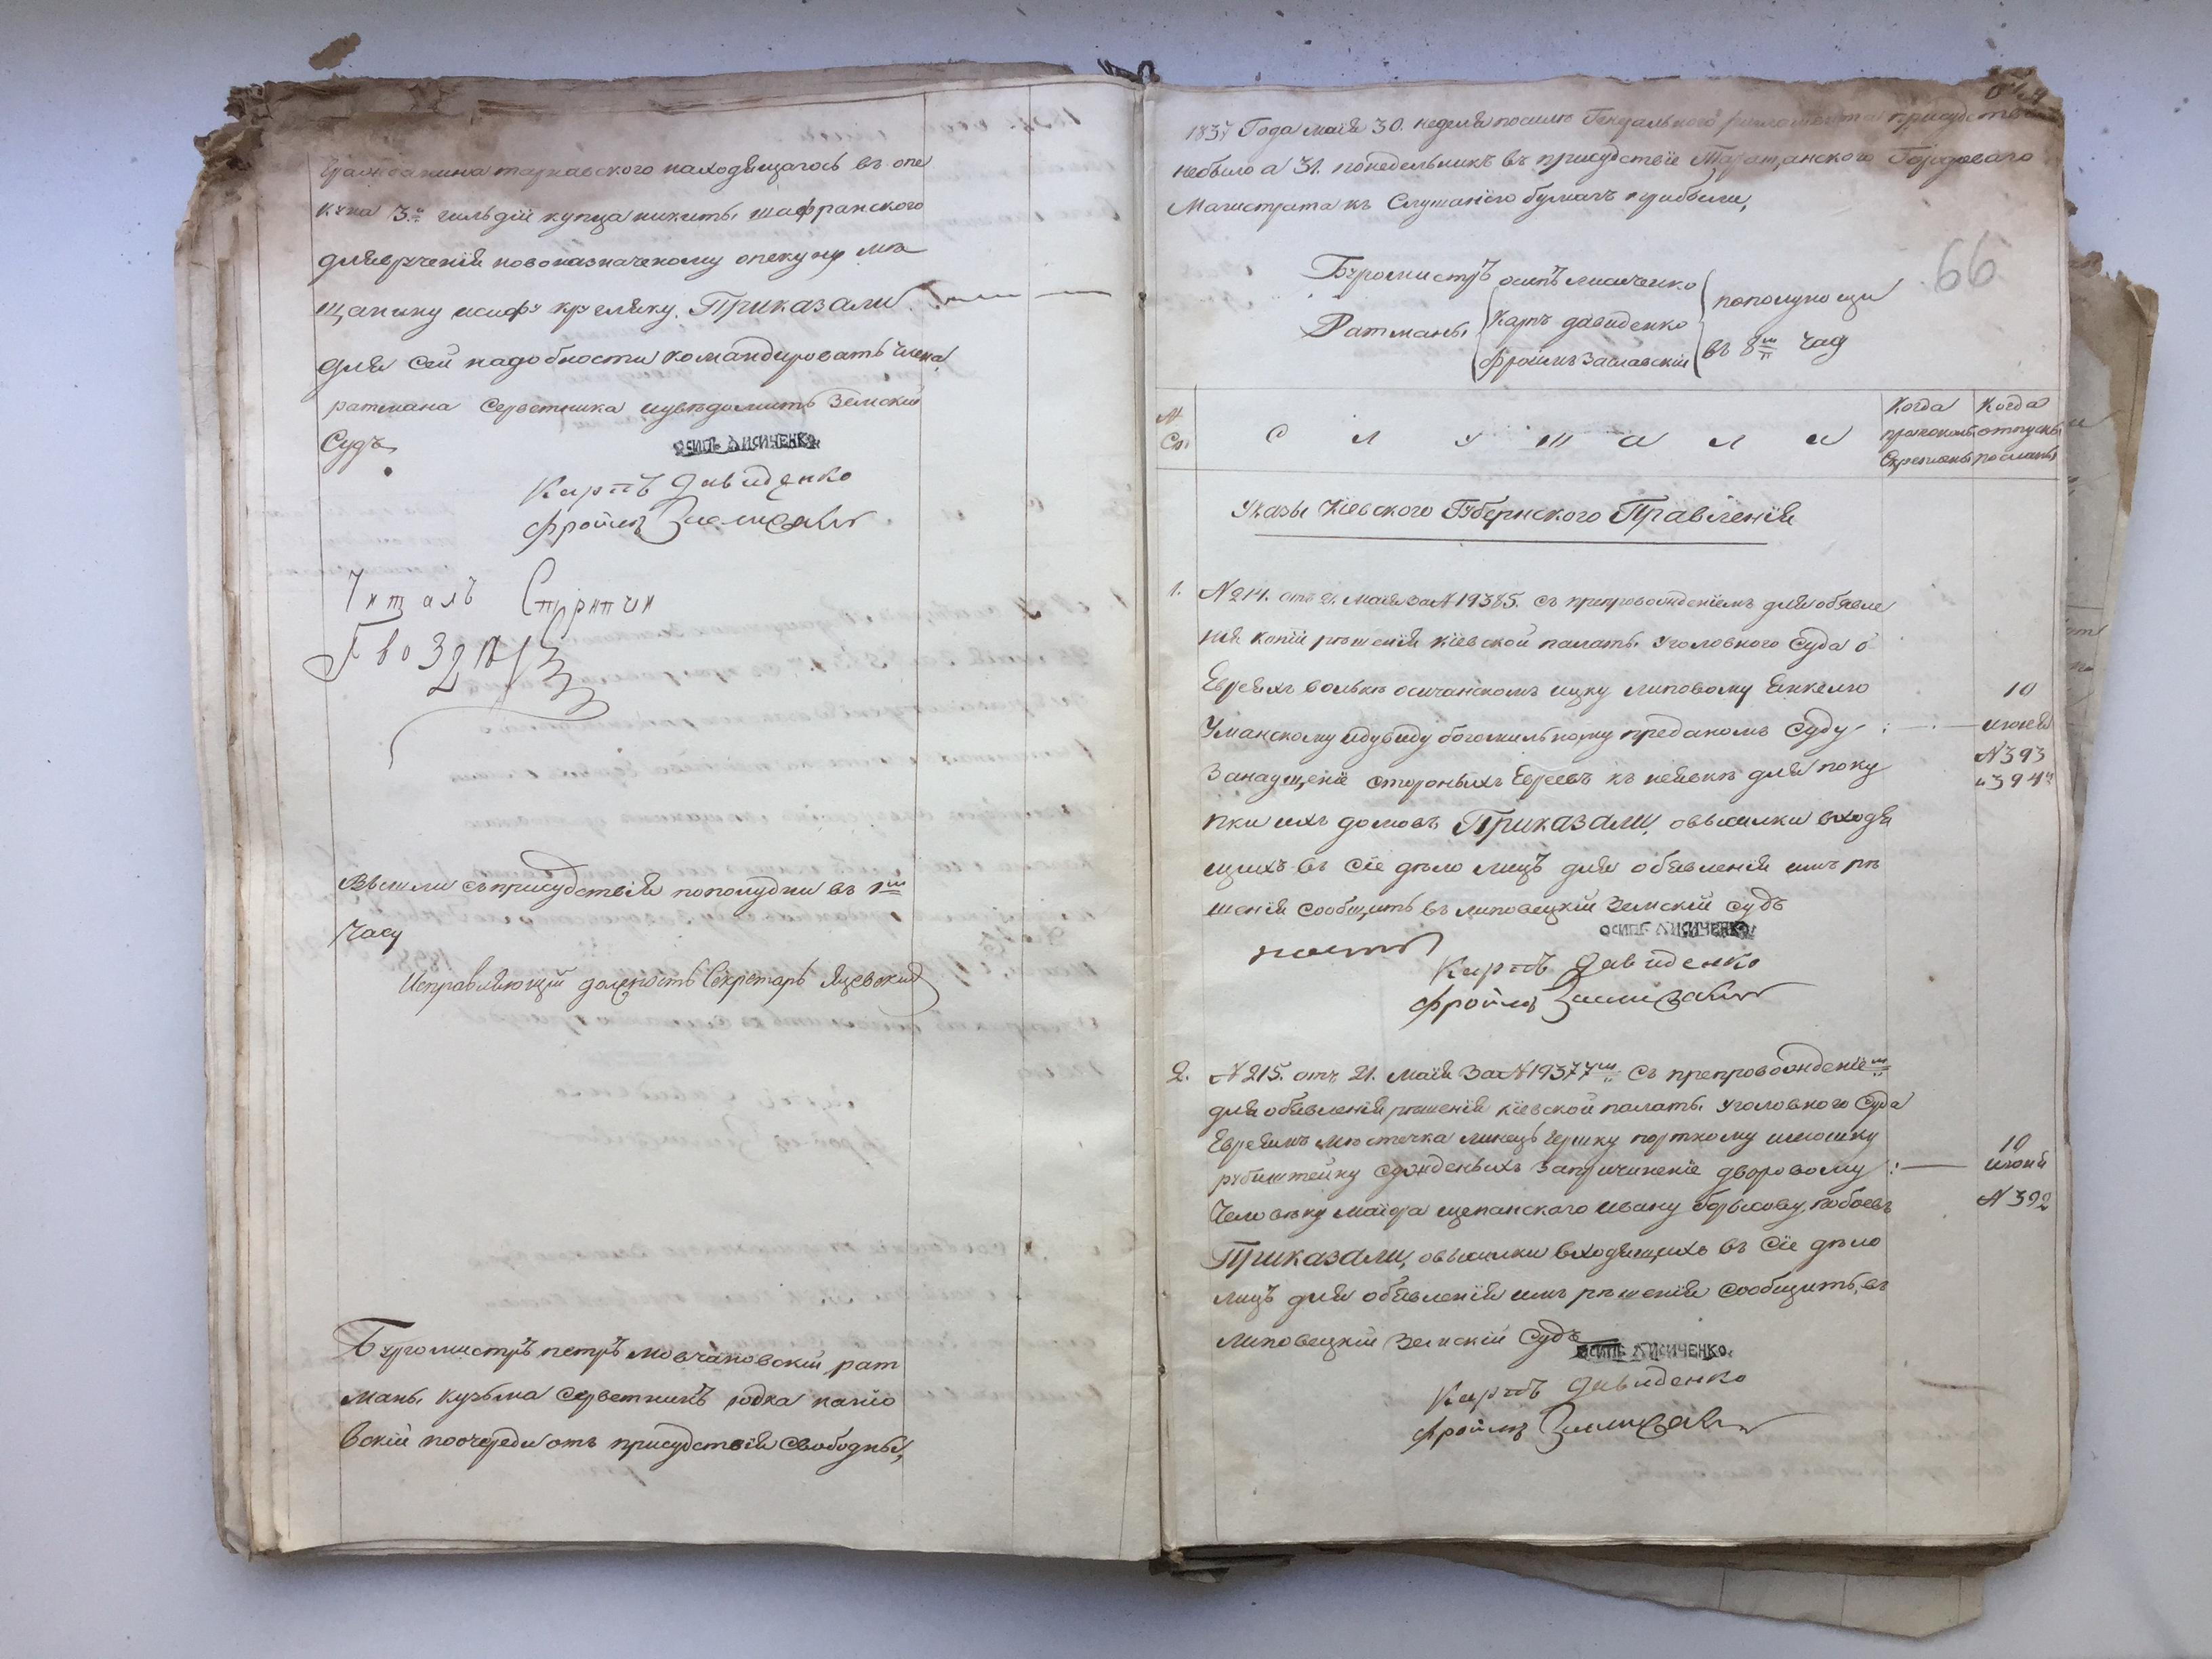 гражданина таркавского находящагось въ опе
куна 3.й гильдіи купца никиты шафранского
для врученія новоназначеному опекуну мѣ
щанину исифу круглику. Приказали
для сей надобности командировать члена
ратмана Серветника изувѣдомить Земский
Судъ
ОСИПЪ ЛИСИЧЕНКО.
Карпъ Давиденко
Фроимъ
Читалъ Стряпчи
Гвозд
Вышли съ присудствія пополудни въ 1м
Часу
Исправляющій должность Секретаръ Яцевский
Бургомистръ петръ мовчановскій рат
маны кузьма Серветникъ юдка канѣо
вскій поочереди отъ присудствія свободны,
1837 Года маія 30. неделя посилѣ Генеральнаго регламента присудствія
небыло а 31. понедельникъ въ присудствіе Таращанского Городоваго
Магистрата къ Слушанію бумагъ прибыли,
66
Бургомистръ осипъ лисиченко
Ратманы карпъ давиденко
фроимъ Заславскій
пополуноци
въ 8м Часу
№ Ст.
С л у ш а л и
Когда протоколы Скрепленны
Когда отпуски посланы
Указы Кіевского Губернского Правленія
1. №214. отъ 21. маія за №19385. съ препровожденіемъ для обявле
нія копіи рѣшенія Кіевской палаты Уголовного Суда о
Евреяхъ волькѣ осичанскомъ ицку липовому Янкелю
Уманскому идувиду богомильному преданомъ Суду
Занадщеніе стороныхъ Евреевъ къ неявкѣ для поку
пки ихъ домовъ Приказали, овысилки входя
щихъ въ Сіе дѣло лицъ для обявленія имъ рѣ
шенія сообщить въ липовецкій Земскій судъ
10
июня
№393
и 394й
ОСИПЪ ЛИСИЧЕНКО.
Карпъ Давиденко
Фроимъ
2. №215. отъ 21. маія За №19377м съ препровожденіемъ
для обявленія рѣшенія кіевской палаты Уголовного Суда
Евреямъ мѣстечка линецъ Гершку порткому шмошку
рубинштейну сужденыхъ Запричиненіе дворовому
Человѣку маіора щепанского ивану борисову, побоевъ
Приказали, овысилки входящихъ въ Сіе дѣло
лицъ для обявленія имъ рѣшенія сообщить, въ
липовецкій Земскій Судъ
10
июня
№392
ОСИПЪ ЛИСИЧЕНКО.
Карпъ Давиденко
Фроимъ